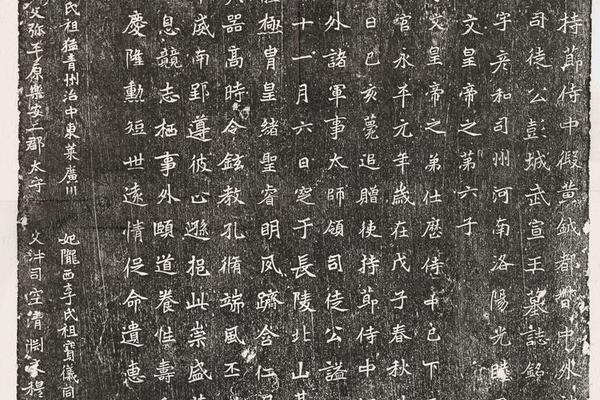 持節侍中假黃鉞都督中外
司徒公彭城武宣王墓誌銘
字彥和司州河南洛陽光睦
文皇帝之第六子
文皇帝之弟仕歷侍中已下
官永平元年歲在戊子春秋
日己亥薨追贈使持節侍中
外諸軍事太師領司徒公謚
十一月六日窆于長陵北山
極胄皇緒聖睿明風躋含仁
器高時令鉉教孔脩端風丕
盛南郢遵彼止遜挹此崇盛
息競志栖事外頤道養性壽
慶隆勳短世遠情促命遺惠
氏祖猛青州治中東萊廣川 妃隴西李氏祖寶儀同
父弥平原樂安二郡太守 父沖司空清淵穆